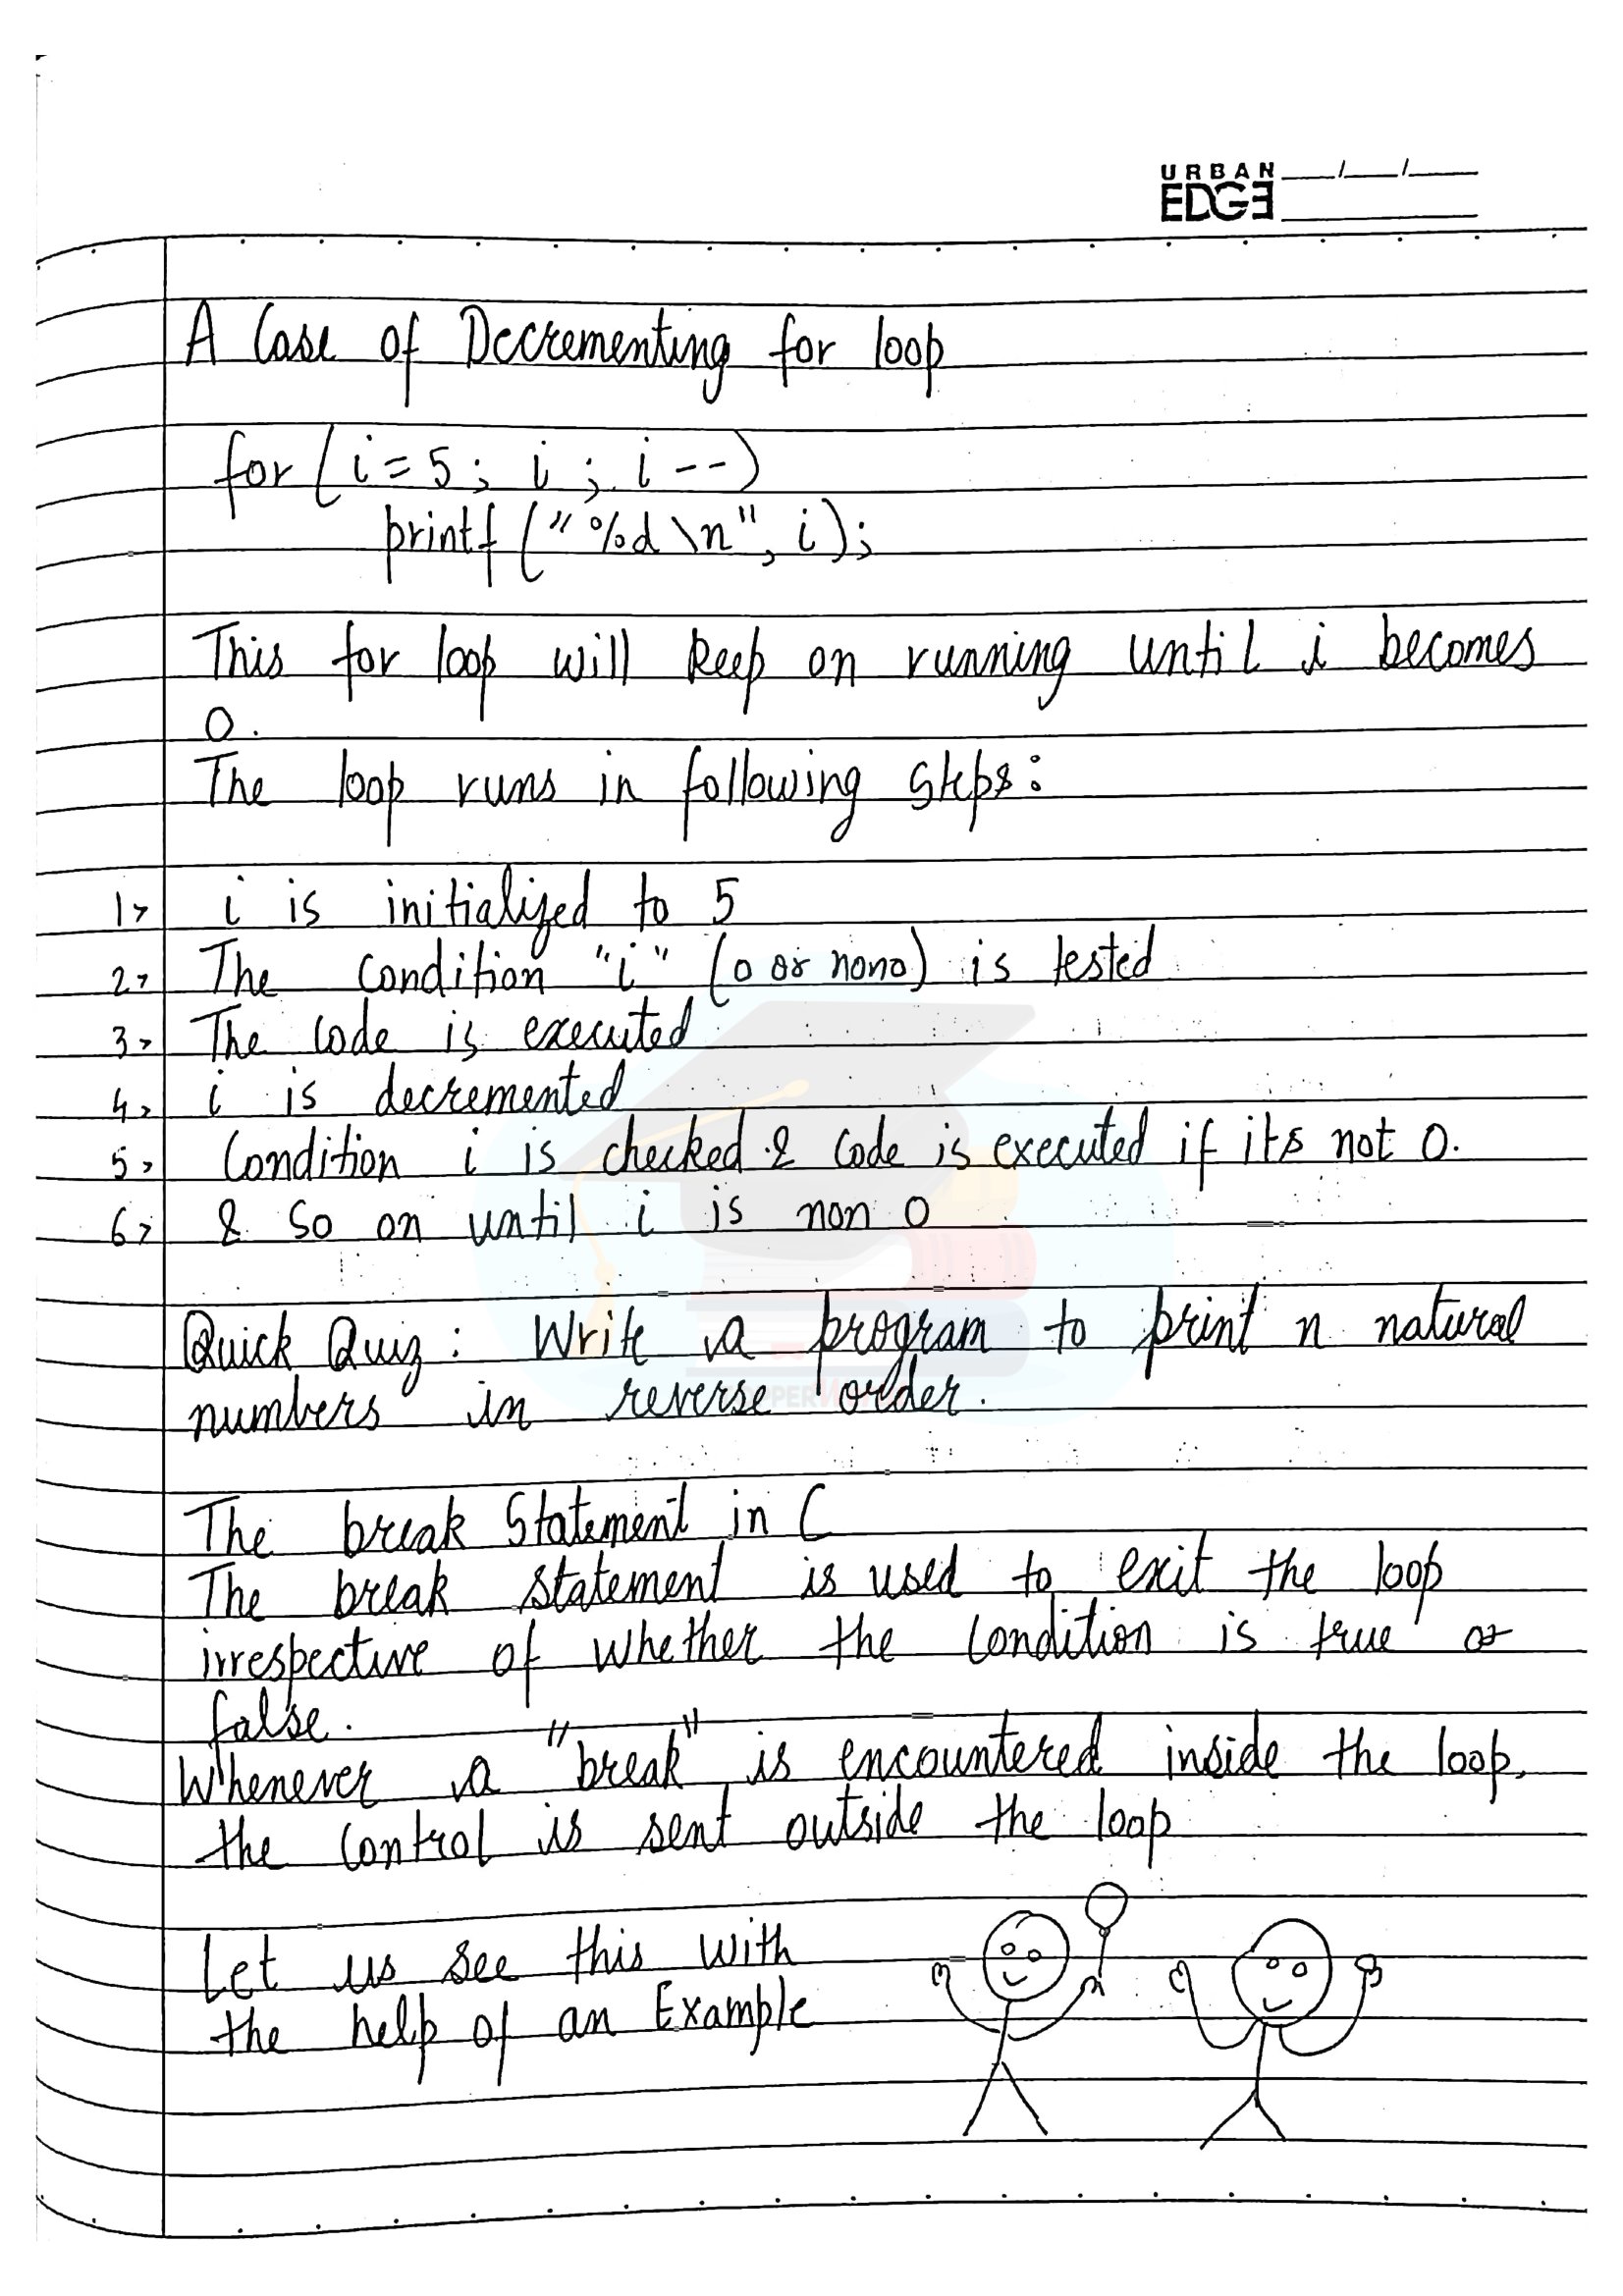 URBAN __/__/__
EDGE
A Case of Decrementing for loop
for (i=5; i; i--)
printf ("%d \n", i);
This for loop will keep on running until i becomes
0.
The loop runs in following steps:
1> i is initialized to 5
2> The condition "i" (0 or non0) is tested
3> The code is executed
4> i is decremented
5> Condition i is checked & code is executed if its not 0.
6> & so on until i is non 0
Quick Quiz: Write a program to print n natural
numbers in reverse order.
The break Statement in C
The break statement is used to exit the loop
irrespective of whether the condition is true or
false.
Whenever a "break" is encountered inside the loop,
the control is sent outside the loop
Let us see this with
the help of an Example